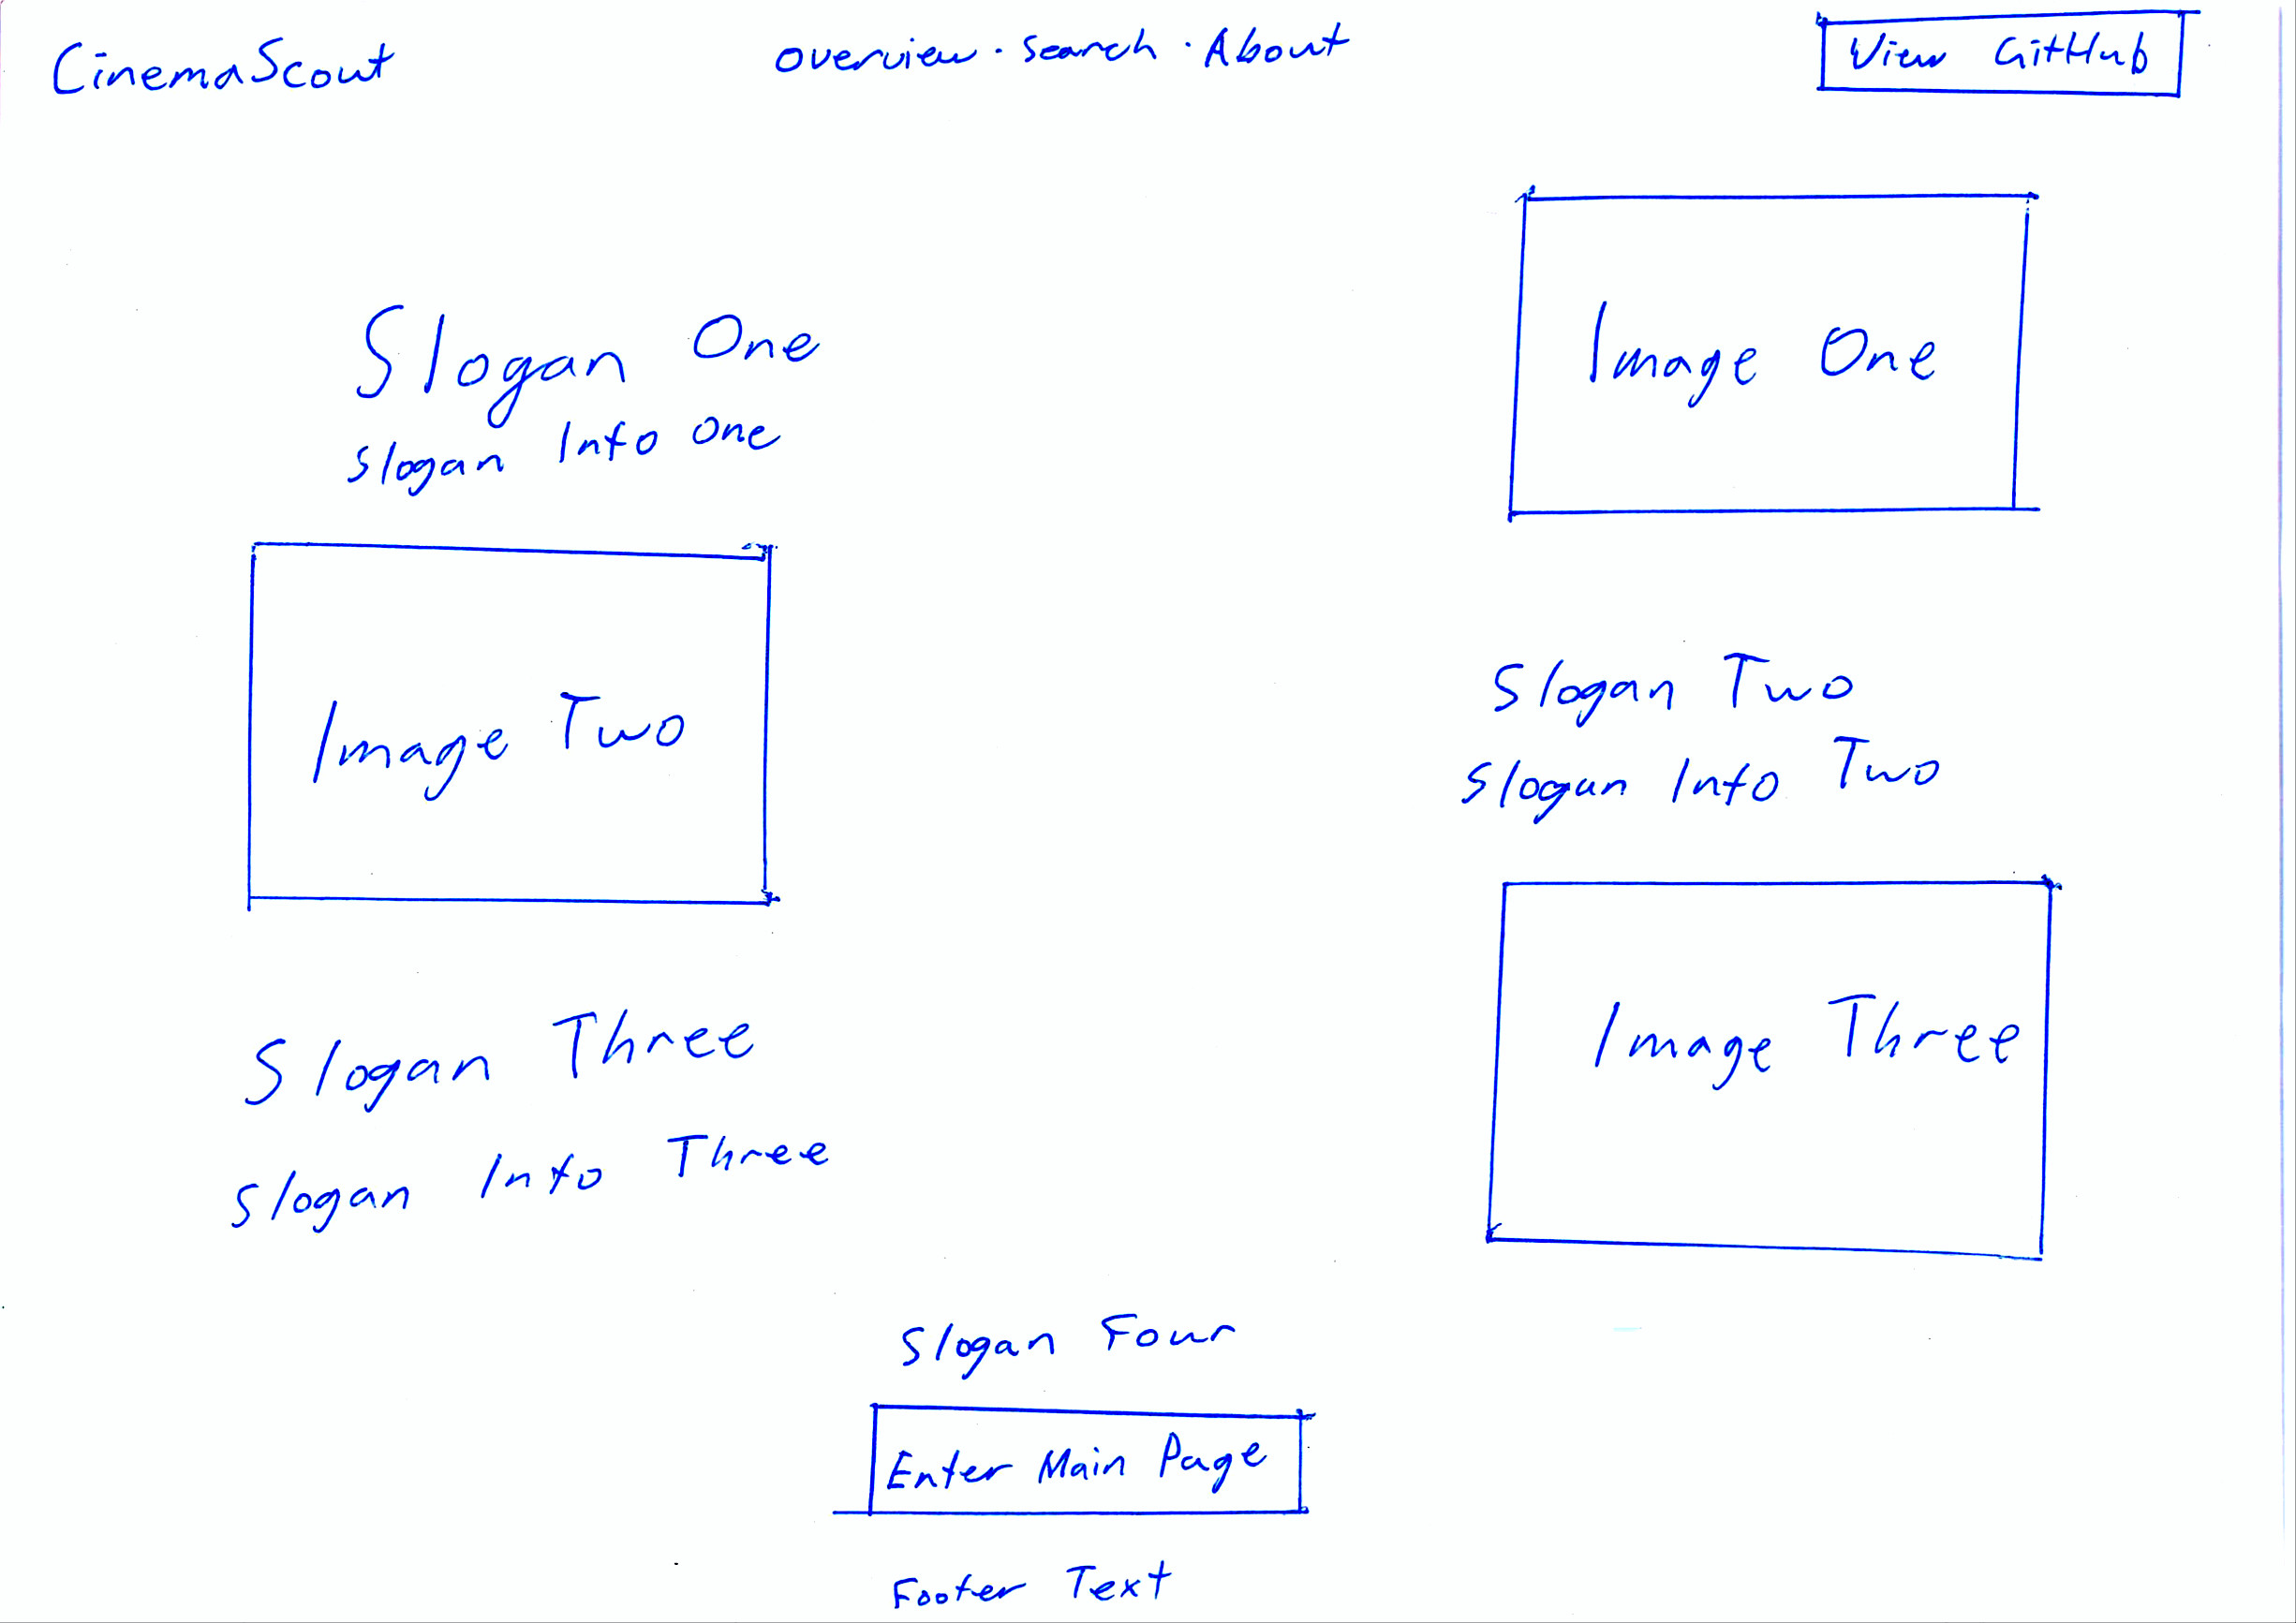 CinemaScout
Overview · Search · About
View GitHub
Slogan One
Slogan Info One
Image One
Image Two
Slogan Two
Slogan Info Two
Slogan Three
Slogan Info Three
Image Three
Slogan Four
Enter Main Page
Footer Text